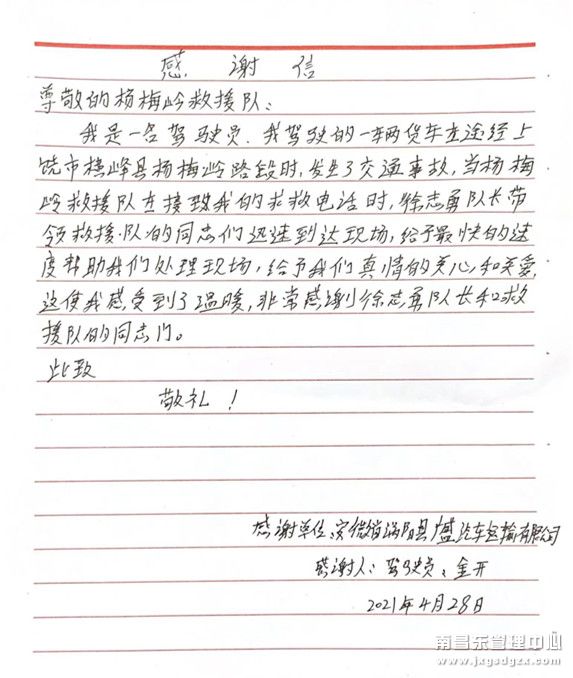 感谢信
尊敬的杨梅岭救援队：
我是一名驾驶员，我驾驶的一辆货车在途经上
饶市横峰县杨梅岭路段时，发生了交通事故，当杨梅
岭救援队在接致我的求救电话时，徐志勇队长带
领救援队的同志们迅速到达现场，给予最快的速
度帮助我们处理现场，给予我们真情的关心和关爱，
这使我感受到了温暖，非常感谢徐志勇队长和救
援队的同志门。
此致
敬礼！
感谢单位：安徽省涡阳县广盛汽车运输有限公司
感谢人：驾驶员：金开
2021年4月28日
南昌东管理中心
www.jxgsdgzx.com